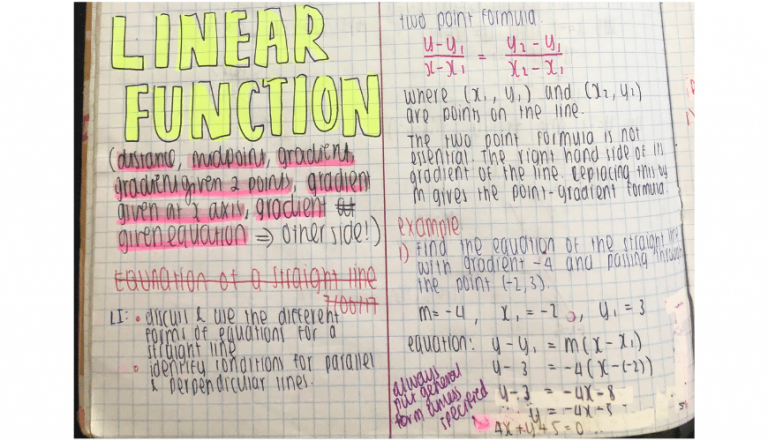 LINEAR
FUNCTION
(distance, midpoint, gradient,
gradient given 2 points, gradient
given at 2 axis, gradient at
given equation ⇒ other side!)
Equation of a straight line
7/06/17
LI: • discuss & use the different
forms of equations for a
straight line
• identify conditions for parallel
& perpendicular lines.
two point formula
y-y₁ / x-x₁ = y₂-y₁ / x₂-x₁
where (x₁, y₁) and (x₂, y₂)
are points on the line.
The two point formula is not
essential. The right hand side of is
gradient of the line. Replacing this by
m gives the point-gradient formula
example
1) find the equation of the straight line
with gradient -4 and passing through
the point (-2,3).
m= -4, x₁ = -2, y₁ = 3
equation: y-y₁ = m(x-x₁)
y-3 = -4(x-(-2))
y-3 = -4x-8
y = -4x-5
4x+y+5=0
always
put general
form unless
specified